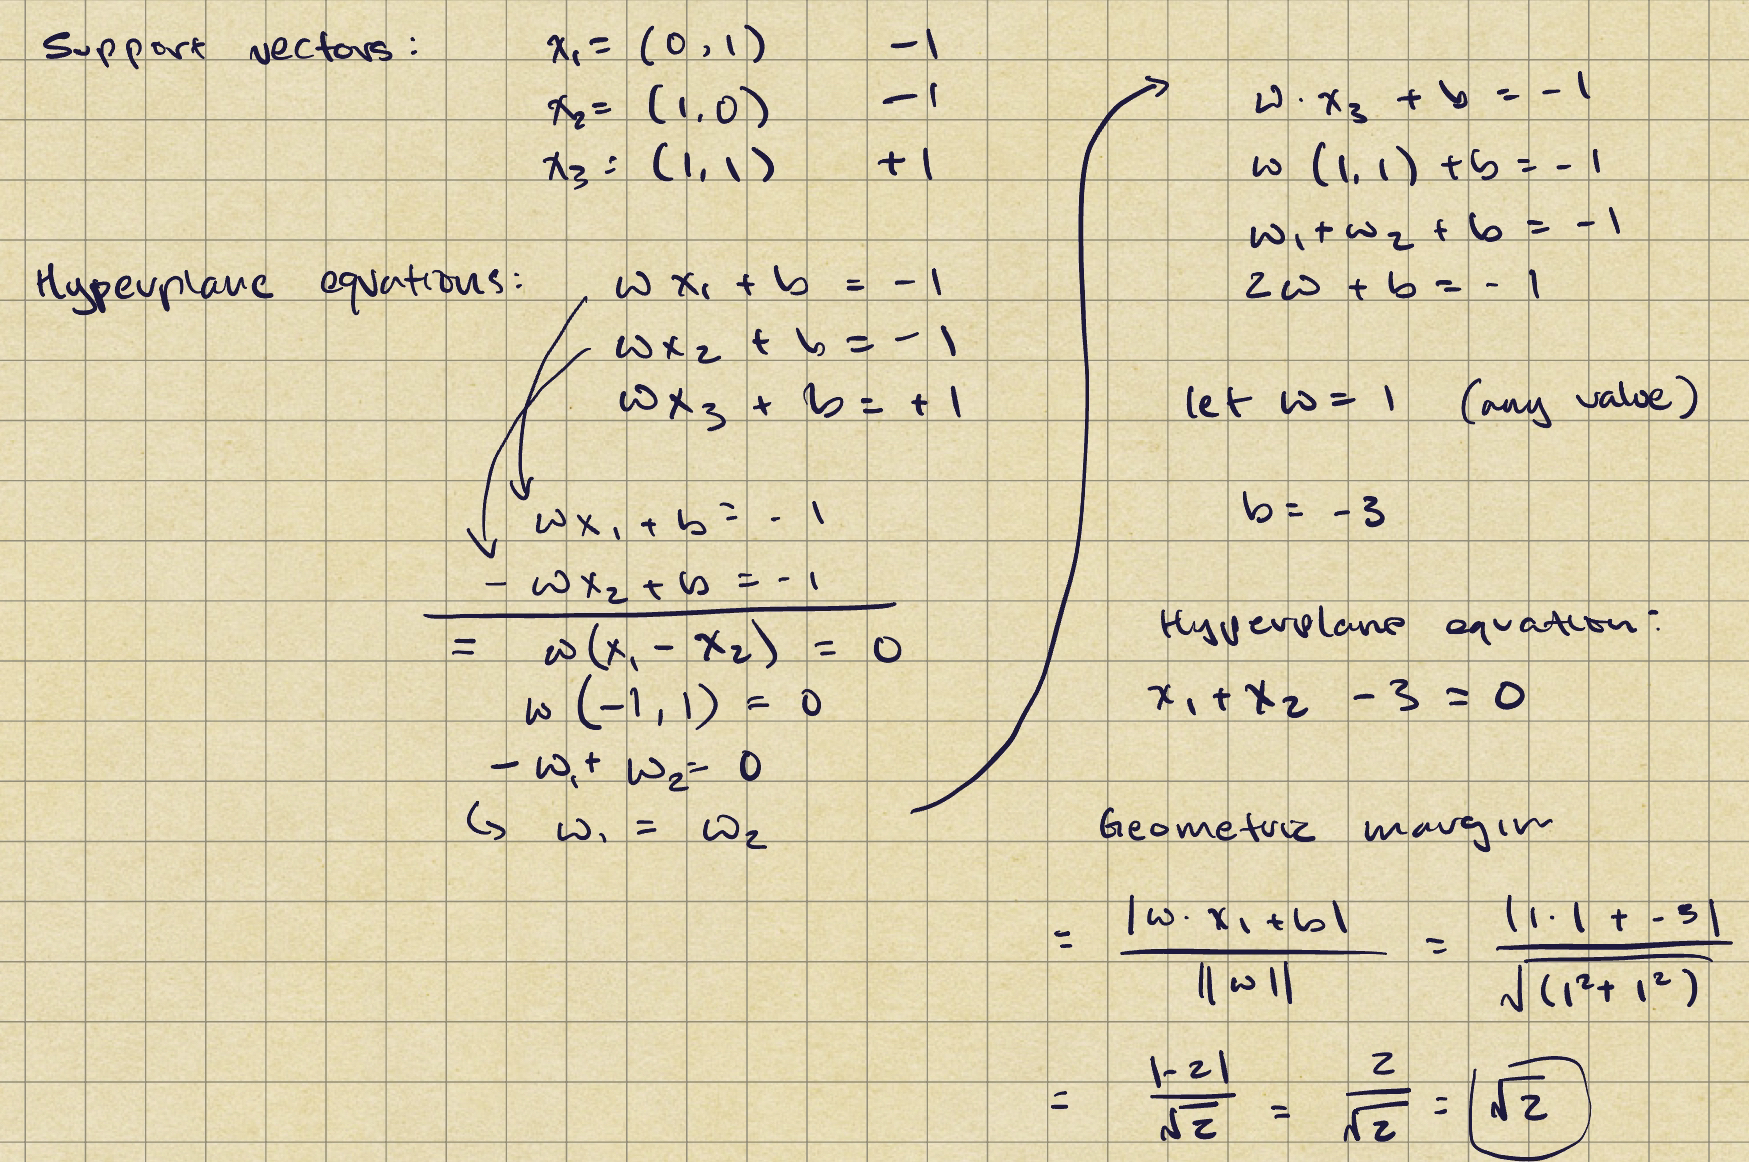 Support vectors: x₁ = (0, 1) -1
x₂ = (1, 0) -1
x₃ = (1, 1) +1
Hyperplane equations: w x₁ + b = -1
w x₂ + b = -1
w x₃ + b = +1
w x₁ + b = -1
- w x₂ + b = -1
= w(x₁ - x₂) = 0
w (-1, 1) = 0
- w₁ + w₂ = 0
↪ w₁ = w₂
w · x₃ + b = -1
w (1, 1) + b = -1
w₁ + w₂ + b = -1
2w + b = -1
let w = 1 (any value)
b = -3
Hyperplane equation:
x₁ + x₂ - 3 = 0
Geometric margin
= |w · x₁ + b| / ||w|| = |1 · 1 + -3| / √(1² + 1²)
= |-2| / √2 = 2 / √2 = √2